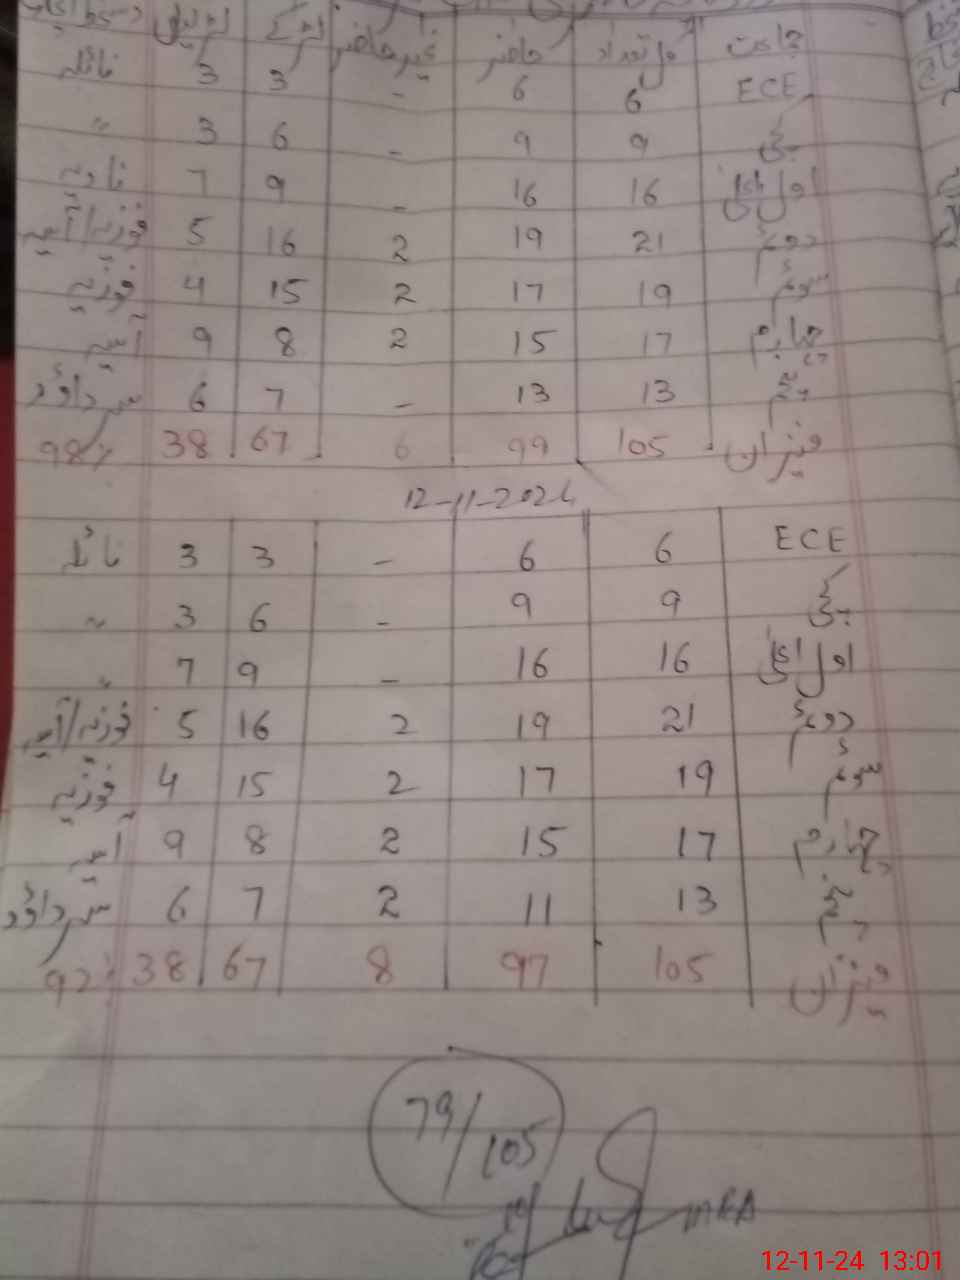 جماعت کل تعداد حاضر غیر حاضر
ECE 6 6 - 3 3 نائلہ
پکی 9 9 - 6 3 "
اول 16 16 - 9 7 نادیہ
دوئم 21 19 2 16 5 فوزیہ/آسیہ
سوئم 19 17 2 15 4 فوزیہ
چہارم 17 15 2 8 9 آسیہ
پنجم 13 13 - 7 6 سر داؤد
میزان 105 99 6 67 38 98%
12-11-2024
ECE 6 6 - 3 3 نائلہ
پکی 9 9 - 6 3 "
اول 16 16 - 9 7 "
دوئم 21 19 2 16 5 فوزیہ/آسیہ
سوئم 19 17 2 15 4 فوزیہ
چہارم 17 15 2 8 9 آسیہ
پنجم 13 11 2 7 6 سر داؤد
میزان 105 97 8 67 38 92%
79/105
MEA
12-11-24 13:01